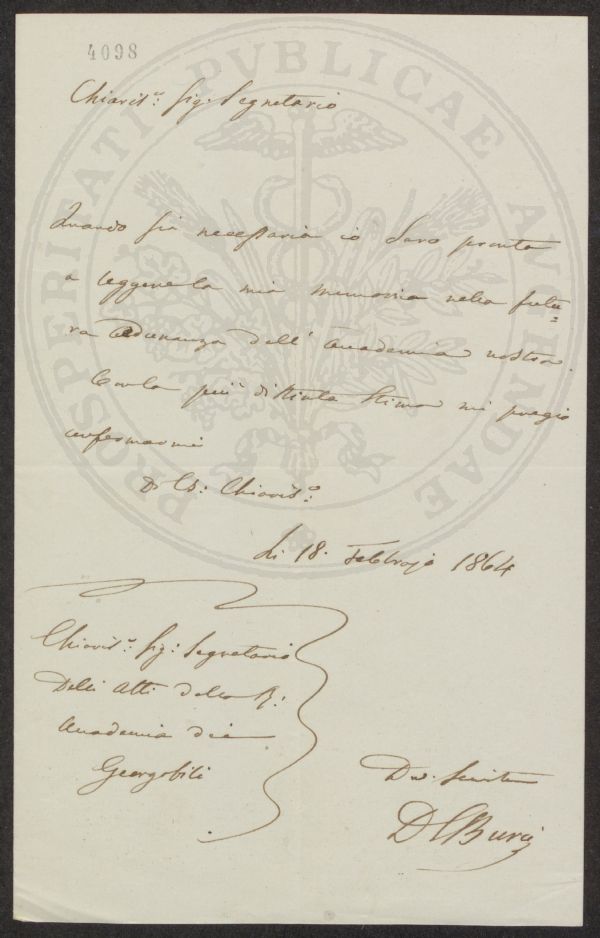 4098
PROSPERITATI PVBLICAE AVGENDAE
Chiaris.º Sig: Segretario
Quando sia necessaria io Sarò pronto
a leggere la mia memoria nella futu=
ra Adunanza dell' Accademia nostra.
Con la più distinta Stima mi pregio
confermarmi
D. Chiariss.º
Li 18. Febbrajo 1864
Chiaris.º Sig: Segretario
Delli Atti della R:
Accademia dei
Georgofili
D C Burci